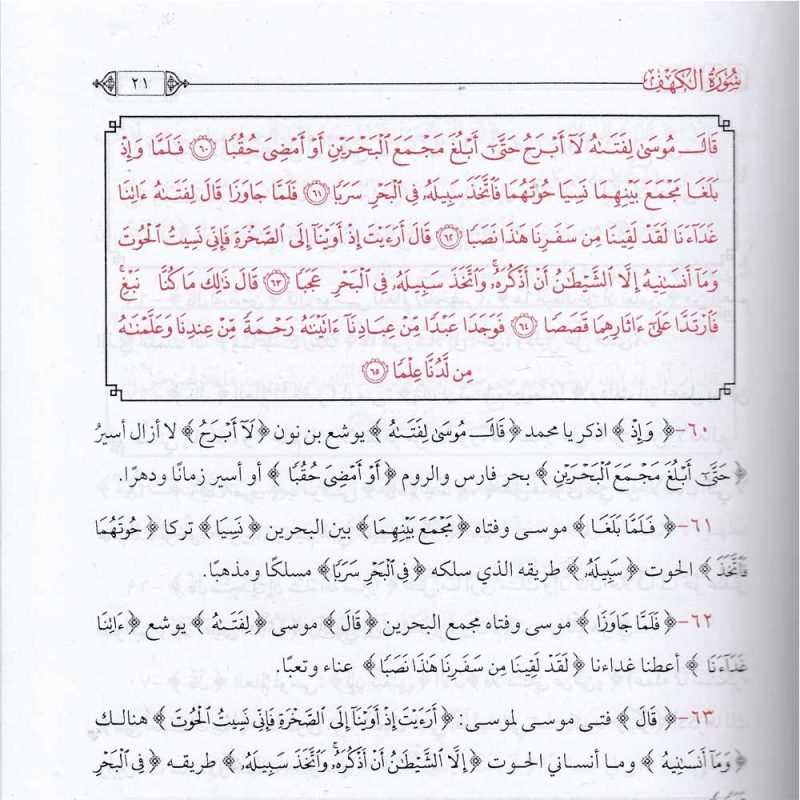 سُورَةُ الكَهْفِ ٢١
قَالَ مُوسَىٰ لِفَتَىٰهُ لَآ أَبْرَحُ حَتَّىٰٓ أَبْلُغَ مَجْمَعَ ٱلْبَحْرَيْنِ أَوْ أَمْضِىَ حُقُبًا ٦٠ فَلَمَّا وَإِذْ
بَلَغَا مَجْمَعَ بَيْنِهِمَا نَسِيَا حُوتَهُمَا فَٱتَّخَذَ سَبِيلَهُۥ فِى ٱلْبَحْرِ سَرَبًا ٦١ فَلَمَّا جَاوَزَا قَالَ لِفَتَىٰهُ ءَاتِنَا
غَدَآءَنَا لَقَدْ لَقِينَا مِن سَفَرِنَا هَٰذَا نَصَبًا ٦٢ قَالَ أَرَءَيْتَ إِذْ أَوَيْنَآ إِلَى ٱلصَّخْرَةِ فَإِنِّى نَسِيتُ ٱلْحُوتَ
وَمَآ أَنسَىٰنِيهُ إِلَّا ٱلشَّيْطَٰنُ أَنْ أَذْكُرَهُۥ وَٱتَّخَذَ سَبِيلَهُۥ فِى ٱلْبَحْرِ عَجَبًا ٦٣ قَالَ ذَٰلِكَ مَا كُنَّا نَبْغِ
فَٱرْتَدَّا عَلَىٰٓ ءَاثَارِهِمَا قَصَصًا ٦٤ فَوَجَدَا عَبْدًا مِّنْ عِبَادِنَآ ءَاتَيْنَٰهُ رَحْمَةً مِّنْ عِندِنَا وَعَلَّمْنَٰهُ
مِن لَّدُنَّا عِلْمًا ٦٥
٦٠- ﴿ وَإِذْ ﴾ اذكر يا محمد ﴿ قَالَ مُوسَىٰ لِفَتَىٰهُ ﴾ يوشع بن نون ﴿ لَآ أَبْرَحُ ﴾ لا أزال أسيرُ
﴿ حَتَّىٰٓ أَبْلُغَ مَجْمَعَ ٱلْبَحْرَيْنِ ﴾ بحر فارس والروم ﴿ أَوْ أَمْضِىَ حُقُبًا ﴾ أو أسير زمانًا ودهرًا.
٦١- ﴿ فَلَمَّا بَلَغَا ﴾ موسى وفتاه ﴿ مَجْمَعَ بَيْنِهِمَا ﴾ بين البحرين ﴿ نَسِيَا ﴾ تركا ﴿ حُوتَهُمَا
فَٱتَّخَذَ ﴾ الحوت ﴿ سَبِيلَهُۥ ﴾ طريقه الذي سلكه ﴿ فِى ٱلْبَحْرِ سَرَبًا ﴾ مسلكًا ومذهبًا.
٦٢- ﴿ فَلَمَّا جَاوَزَا ﴾ موسى وفتاه مجمع البحرين ﴿ قَالَ ﴾ موسى ﴿ لِفَتَىٰهُ ﴾ يوشع ﴿ ءَاتِنَا
غَدَآءَنَا ﴾ أعطنا غداءنا ﴿ لَقَدْ لَقِينَا مِن سَفَرِنَا هَٰذَا نَصَبًا ﴾ عناء وتعبًا.
٦٣- ﴿ قَالَ ﴾ فتى موسى لموسى: ﴿ أَرَءَيْتَ إِذْ أَوَيْنَآ إِلَى ٱلصَّخْرَةِ فَإِنِّى نَسِيتُ ٱلْحُوتَ ﴾ هنالك
﴿ وَمَآ أَنسَىٰنِيهُ ﴾ وما أنساني الحوت ﴿ إِلَّا ٱلشَّيْطَٰنُ أَنْ أَذْكُرَهُۥ وَٱتَّخَذَ سَبِيلَهُۥ ﴾ طريقه ﴿ فِى ٱلْبَحْرِ